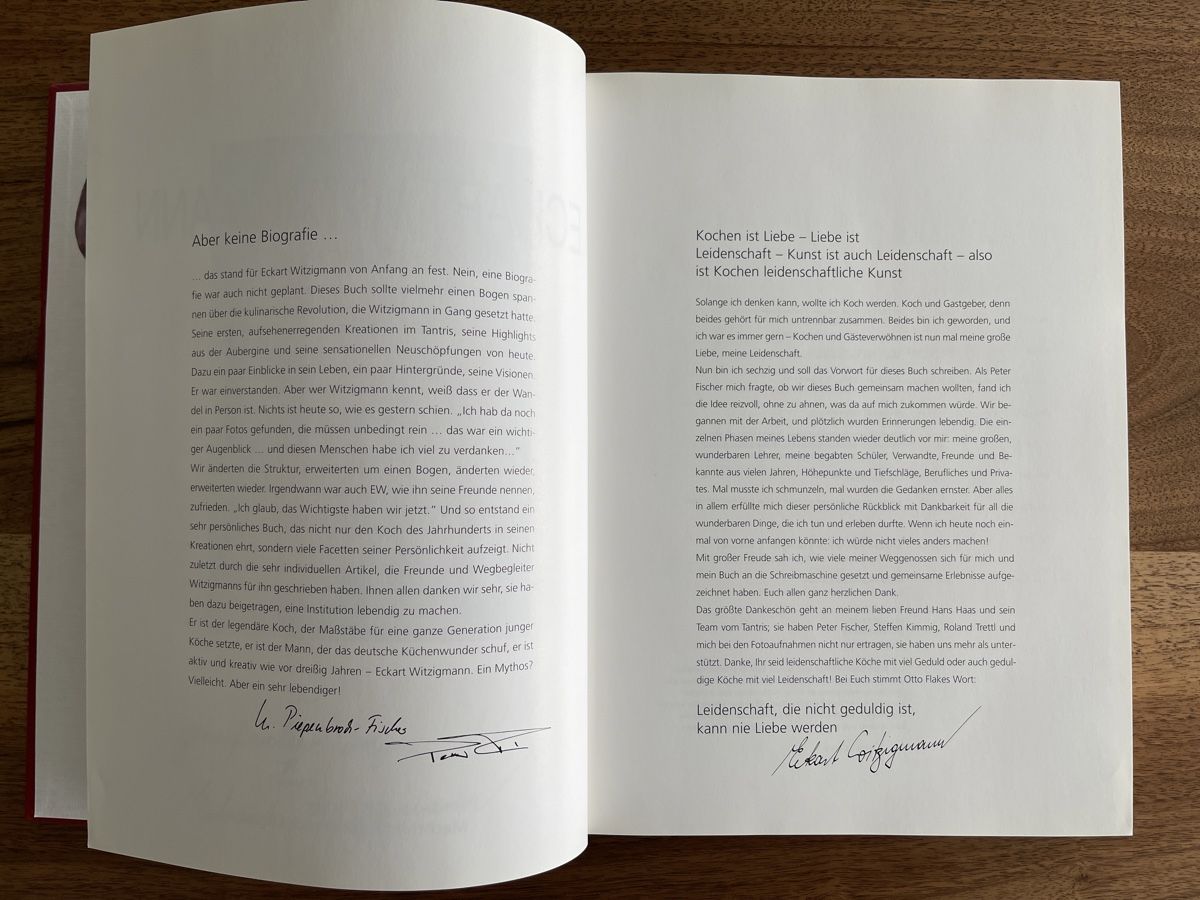 Aber keine Biografie …
… das stand für Eckart Witzigmann von Anfang an fest. Nein, eine Biogra-
fie war auch nicht geplant. Dieses Buch sollte vielmehr einen Bogen span-
nen über die kulinarische Revolution, die Witzigmann in Gang gesetzt hatte.
Seine ersten, aufsehenerregenden Kreationen im Tantris, seine Highlights
aus der Aubergine und seine sensationellen Neuschöpfungen von heute.
Dazu ein paar Einblicke in sein Leben, ein paar Hintergründe, seine Visionen.
Er war einverstanden. Aber wer Witzigmann kennt, weiß dass er der Wan-
del in Person ist. Nichts ist heute so, wie es gestern schien. „Ich hab da noch
ein paar Fotos gefunden, die müssen unbedingt rein … das war ein wichti-
ger Augenblick … und diesen Menschen habe ich viel zu verdanken…“
Wir änderten die Struktur, erweiterten um einen Bogen, änderten wieder,
erweiterten wieder. Irgendwann war auch EW, wie ihn seine Freunde nennen,
zufrieden. „Ich glaub, das Wichtigste haben wir jetzt.“ Und so entstand ein
sehr persönliches Buch, das nicht nur den Koch des Jahrhunderts in seinen
Kreationen ehrt, sondern viele Facetten seiner Persönlichkeit aufzeigt. Nicht
zuletzt durch die sehr individuellen Artikel, die Freunde und Wegbegleiter
Witzigmanns für ihn geschrieben haben. Ihnen allen danken wir sehr, sie ha-
ben dazu beigetragen, eine Institution lebendig zu machen.
Er ist der legendäre Koch, der Maßstäbe für eine ganze Generation junger
Köche setzte, er ist der Mann, der das deutsche Küchenwunder schuf, er ist
aktiv und kreativ wie vor dreißig Jahren – Eckart Witzigmann. Ein Mythos?
Vielleicht. Aber ein sehr lebendiger!
Piepenbrock-Fischer
Kochen ist Liebe – Liebe ist
Leidenschaft – Kunst ist auch Leidenschaft – also
ist Kochen leidenschaftliche Kunst
Solange ich denken kann, wollte ich Koch werden. Koch und Gastgeber, denn
beides gehört für mich untrennbar zusammen. Beides bin ich geworden, und
ich war es immer gern – Kochen und Gästeverwöhnen ist nun mal meine große
Liebe, meine Leidenschaft.
Nun bin ich sechzig und soll das Vorwort für dieses Buch schreiben. Als Peter
Fischer mich fragte, ob wir dieses Buch gemeinsam machen wollten, fand ich
die Idee reizvoll, ohne zu ahnen, was da auf mich zukommen würde. Wir be-
gannen mit der Arbeit, und plötzlich wurden Erinnerungen lebendig. Die ein-
zelnen Phasen meines Lebens standen wieder deutlich vor mir: meine großen,
wunderbaren Lehrer, meine begabten Schüler, Verwandte, Freunde und Be-
kannte aus vielen Jahren, Höhepunkte und Tiefschläge, Berufliches und Priva-
tes. Mal musste ich schmunzeln, mal wurden die Gedanken ernster. Aber alles
in allem erfüllte mich dieser persönliche Rückblick mit Dankbarkeit für all die
wunderbaren Dinge, die ich tun und erleben durfte. Wenn ich heute noch ein-
mal von vorne anfangen könnte: ich würde nicht vieles anders machen!
Mit großer Freude sah ich, wie viele meiner Weggenossen sich für mich und
mein Buch an die Schreibmaschine gesetzt und gemeinsame Erlebnisse aufge-
zeichnet haben. Euch allen ganz herzlichen Dank.
Das größte Dankeschön geht an meinem lieben Freund Hans Haas und sein
Team vom Tantris; sie haben Peter Fischer, Steffen Kimmig, Roland Trettl und
mich bei den Fotoaufnahmen nicht nur ertragen, sie haben uns mehr als unter-
stützt. Danke, Ihr seid leidenschaftliche Köche mit viel Geduld oder auch gedul-
dige Köche mit viel Leidenschaft! Bei Euch stimmt Otto Flakes Wort:
Leidenschaft, die nicht geduldig ist,
kann nie Liebe werden
Eckart Witzigmann